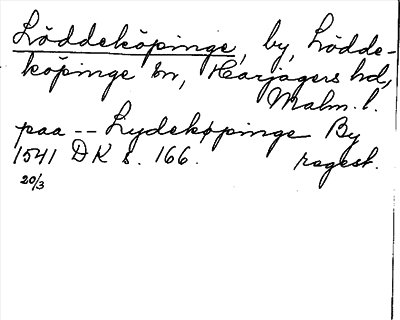 Löddeköpinge, by, Lödde-
köpinge sn, Harjagers hd,
Malm. l.
paa -- Lydekøpinge By
1541 DK s. 166. regest.
20/3